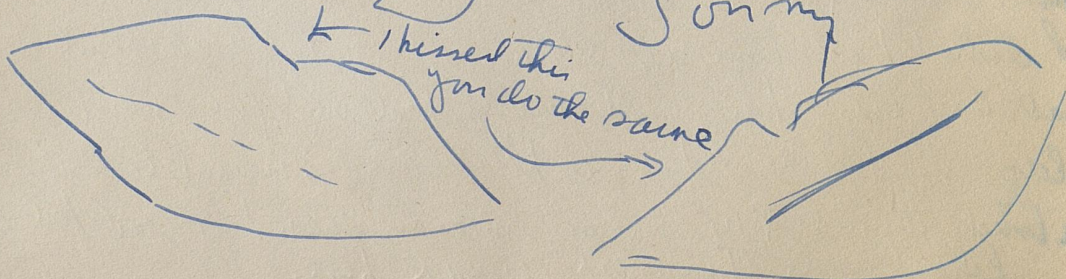 Sonny
I kissed this
you do the same